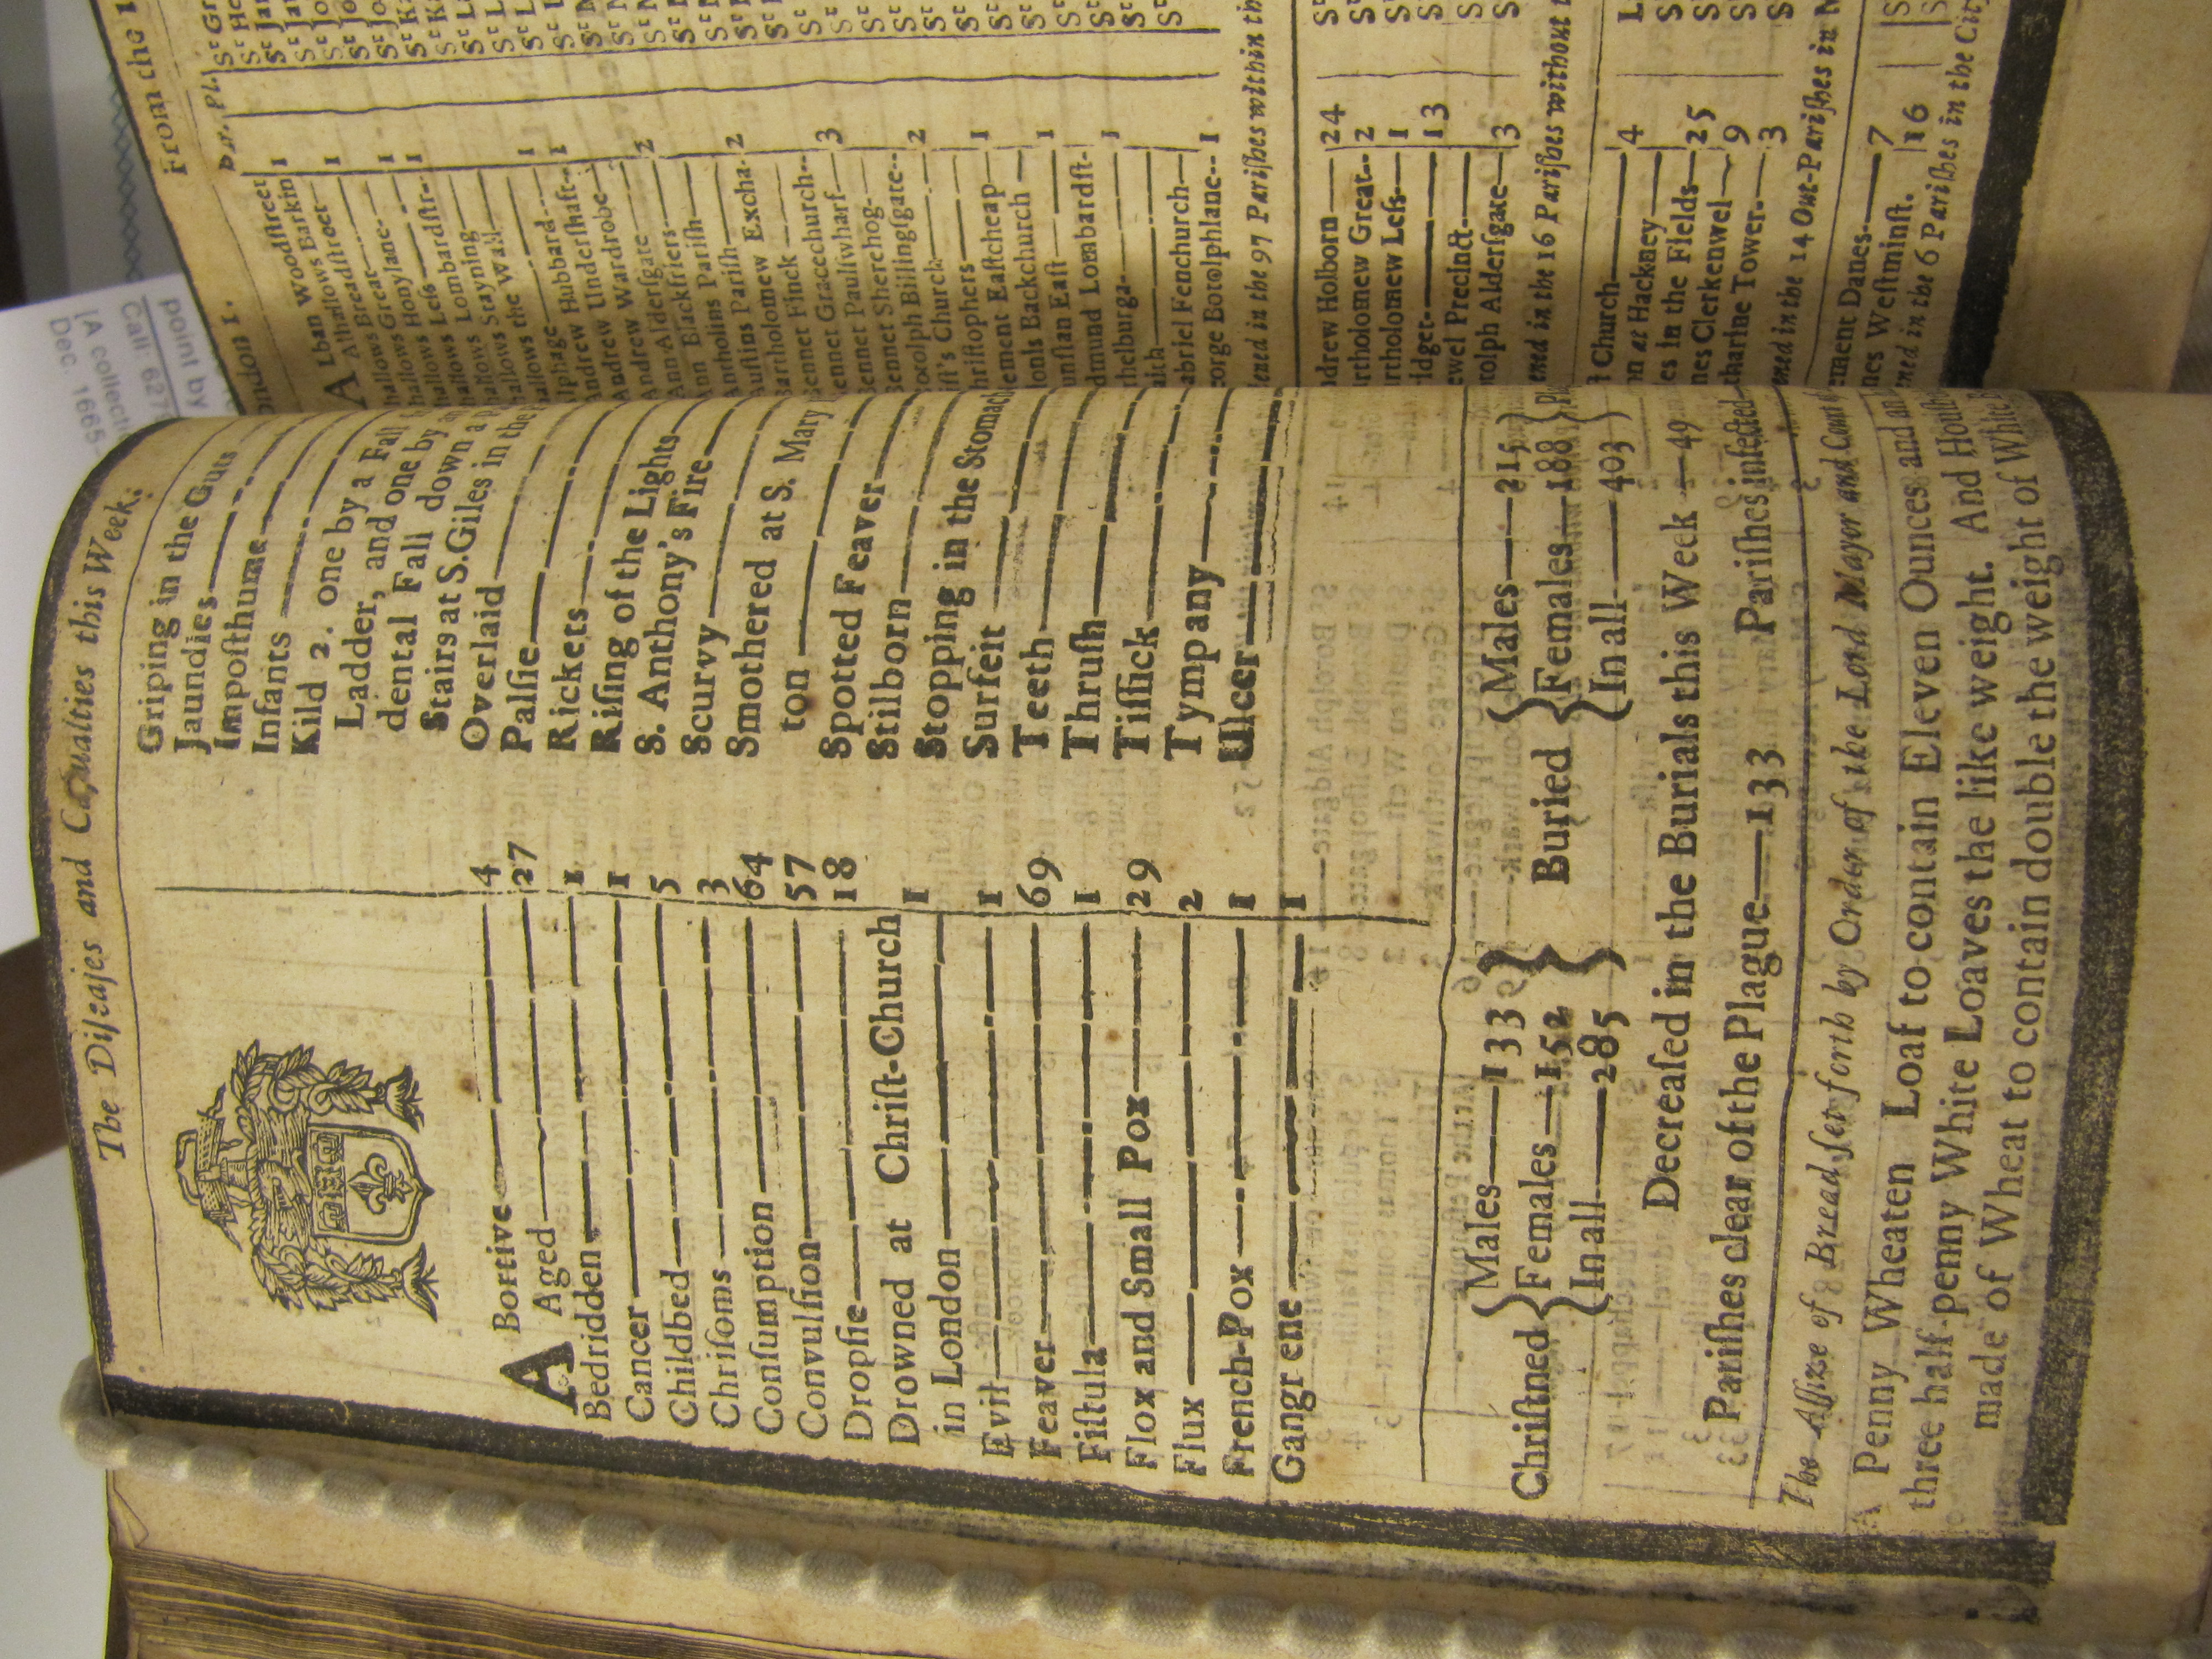 The Diſeaſes and Caſualties this Week.
ABortive 4
Aged 27
Bedridden 1
Cancer 1
Childbed 5
Chriſoms 3
Conſumption 64
Convulſion 57
Dropſie 18
Drowned at Chriſt-Church
in London 1
Evil 1
Feaver 69
Fiſtula 1
Flox and Small Pox 29
Flux 2
French-Pox 1
Gangrene 1
Griping in the Guts
Jaundies
Impoſthume
Infants
Kild 2. one by a Fall
Ladder, and one by
dental Fall down a
Stairs at S. Giles in the
Overlaid
Palſie
Rickets
Riſing of the Lights
S. Anthony's Fire
Scurvy
Smothered at S. Mary
ton
Spotted Feaver
Stilborn
Stopping in the Stomach
Surfeit
Teeth
Thruſh
Tiſſick
Tympany
Ulcer
Chriſtned { Males 133 Females 152 In all 285 }
Buried { Males 215 Females 188 In all 403 }
Decreaſed in the Burials this Week 49
Pariſhes clear of the Plague 133 Pariſhes infected
The Aſſize of Bread ſet forth by Order of the Lord Mayor and Court
A Penny Wheaten Loaf to contain Eleven Ounces and
three half-penny White Loaves the like weight. And
made of Wheat to contain double the weight of White
From the
ondon 1.
ALban Woodſtreet
Alhallows Barkin 1
Alhallows Breadſtreet 1
hallows Great
hallows Honylane 1
hallows Leſs 1
hallows Lombardſtr
hallows Stayning
hallows the Wall
Alphage 1
Andrew Hubbard 1
Andrew Underſhaft
Andrew Wardrobe
Ann Alderſgate 2
Ann Blackfriers
Antholins Pariſh
Auſtins Pariſh 2
Bartholomew Excha.
Bennet Finck
ennet Gracechurch 3
ennet Paulſwharf
ennet Sherehog
otolph Billingſgate 2
iſt's Church
hriſtophers
ement Eaſtcheap 1
ionis Backchurch
unſtan Eaſt 1
dmund Lombardſt.
thelburga 1
aith
abriel Fenchurch
eorge Botolphlane 1
ened in the 97 Pariſhes within th
drew Holborn 24
rtholomew Great 2
rtholomew Leſs 1
idget 13
ewel Precinct
otolph Alderſgate 3
ened in the 16 Pariſhes without
Church
n at Hackney 4
es in the Fields 25
nes Clerkenwel 9
tharine Tower 3
ened in the 14 Out-Pariſhes in
ement Danes 7
nes Weſtminſt. 16
ned in the 6 Pariſhes in the City
point by
Call: 627
[A collecti
Dec. 1665